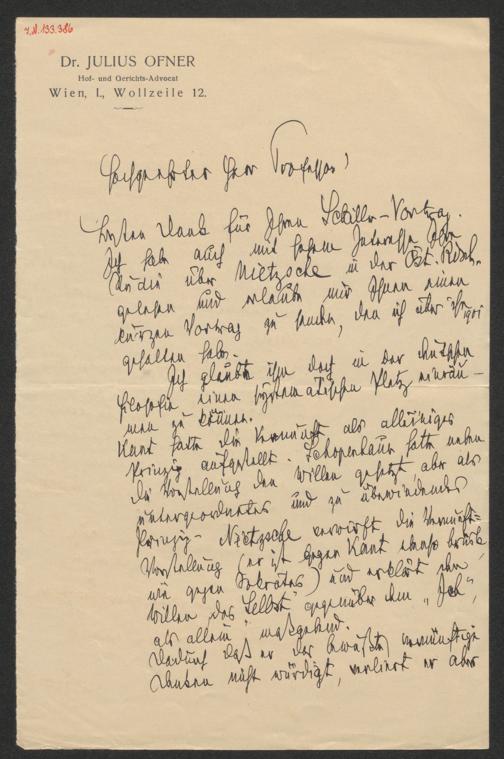 I.N. 133.386
Dr. JULIUS OFNER
Hof- und Gerichts-Advocat
Wien, I., Wollzeile 12.
Hochgeehrter Herr Professor!
Besten Dank für Ihren Schiller-Vortrag.
Ich habe auch mit hohem Interesse Ihre
Studie über Nietzsche in der Öst. Rund-
gelesen und erlaube mir Ihnen einen
kurzen Vortrag zu senden, den ich über ihn 1901
gehalten habe.
Ich glaubte ihm dort in der deutschen
Filosofie einen systematischen Platz einräu-
men zu können.
Kant hatte die Vernunft als alleiniges
Prinzip aufgestellt. Schopenhauer hatte neben
die Vorstellung den Willen gesetzt, aber als
untergeordnetes und zu überwindendes
Prinzip. Nietzsche verwirft die Vernunft-
Vorstellung (er ist gegen Kant ebenso
wie gegen Sokrates) und erklärt den
Willen das "Selbst" gegenüber dem "Ich",
als allein maßgebend.
Dadurch daß er das bewußte, vernünftige
Denken nicht würdigt, verliert er aber